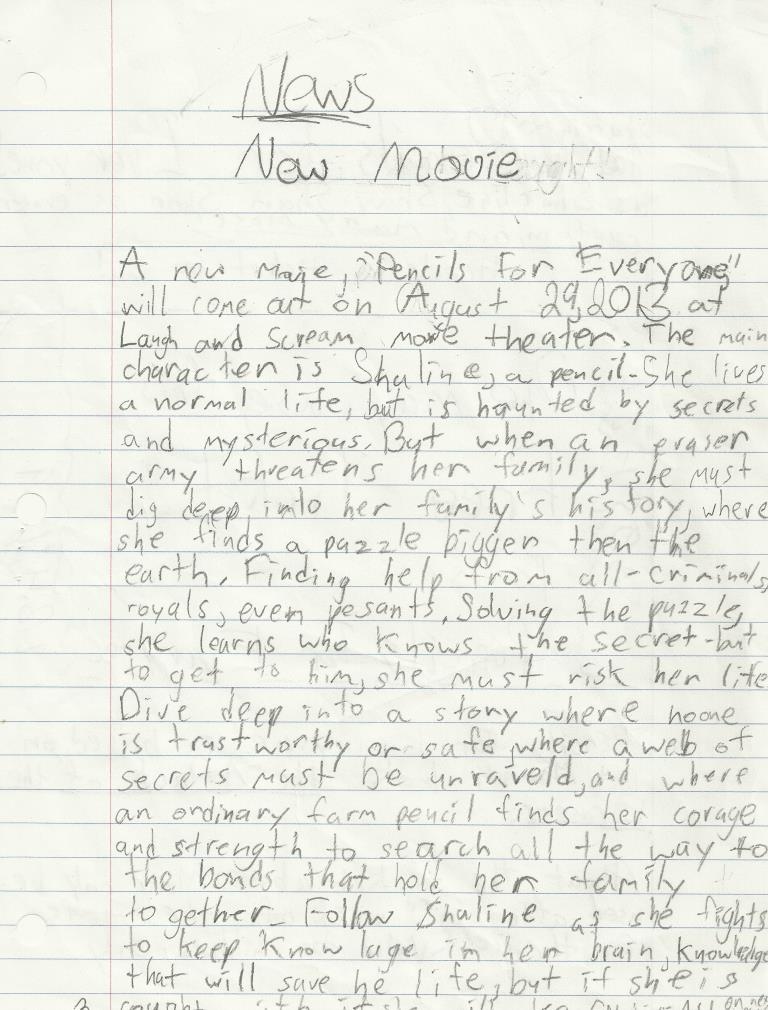 News
New Movie
A new movie, "Pencils for Everyone"
will come out on August 29, 2013 at
Laugh and Scream movie theater. The main
character is Shaline, a pencil. She lives
a normal life, but is haunted by secrets
and mysterious. But when an eraser
army threatens her family, she must
dig deep into her family's history, where
she finds a puzzle bigger then the
earth. Finding help from all-criminals,
royals, even pesants. Solving the puzzle,
she learns who knows the secret-but
to get to him, she must risk her life
Dive deep into a story where noone
is trustworthy or safe, where a web of
secrets must be unraveld, and where
an ordinary farm pencil finds her corage
and strength to search all the way to
the bonds that hold her family
to gether. Follow Shaline as she fights
to keep know lage in her brain, knowledge
that will save he life, but if she is